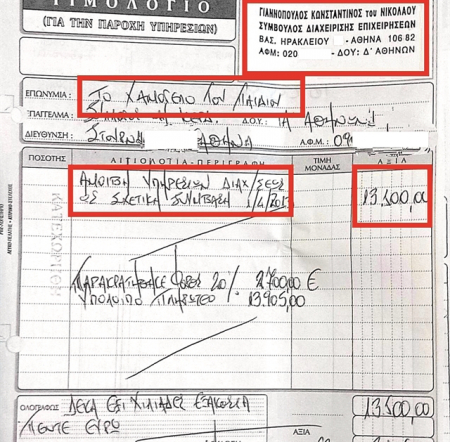 ΤΙΜΟΛΟΓΙΟ
(ΓΙΑ ΤΗΝ ΠΑΡΟΧΗ ΥΠΗΡΕΣΙΩΝ)
ΓΙΑΝΝΟΠΟΥΛΟΣ ΚΩΝΣΤΑΝΤΙΝΟΣ του ΝΙΚΟΛΑΟΥ
ΣΥΜΒΟΥΛΟΣ ΔΙΑΧΕΙΡΙΣΗΣ ΕΠΙΧΕΙΡΗΣΕΩΝ
ΒΑΣ. ΗΡΑΚΛΕΙΟΥ - ΑΘΗΝΑ 106 82
ΑΦΜ: 020 - ΔΟΥ: Δ' ΑΘΗΝΩΝ
ΕΠΩΝΥΜΙΑ: ΤΟ ΧΑΜΟΓΕΛΟ ΤΟΥ ΠΑΙΔΙΟΥ
ΕΠΑΓΓΕΛΜΑ: Δ.Ο.Υ. ΙΑ ΑΘΗΝΩΝ
ΔΙΕΥΘΥΝΣΗ: ΣΤΟΥΡΝΑ ΑΘΗΝΑ Α.Φ.Μ.: 09
ΠΟΣΟΤΗΣ ΑΙΤΙΟΛΟΓΙΑ-ΠΕΡΙΓΡΑΦΗ ΤΙΜΗ ΜΟΝΑΔΟΣ ΑΞΙΑ
ΑΜΟΙΒΗ ΥΠΗΡΕΣΙΩΝ ΔΙΑΧ/ΣΕΩΣ 13.500,00
ΩΣ ΣΧΕΤΙΚΑ ΣΥΜΒΑΣΗ
ΚΑΤΕΧΩΡΙΣΘΗ
ΠΑΡΑΚΡΑΤΗΘΗΚΕ ΦΟΡΟΣ 20% 2.700,00 €
ΥΠΟΛΟΙΠΟ ΠΛΗΡΩΤΕΟ 13.905,00
ΟΛΟΓΡΑΦΩΣ ΔΕΚΑ ΕΞΙ ΧΙΛΙΑΔΕΣ ΕΞΑΚΟΣΙΑ 13.500,00
ΠΕΝΤΕ ΕΥΡΩ ΑΞΙΑ